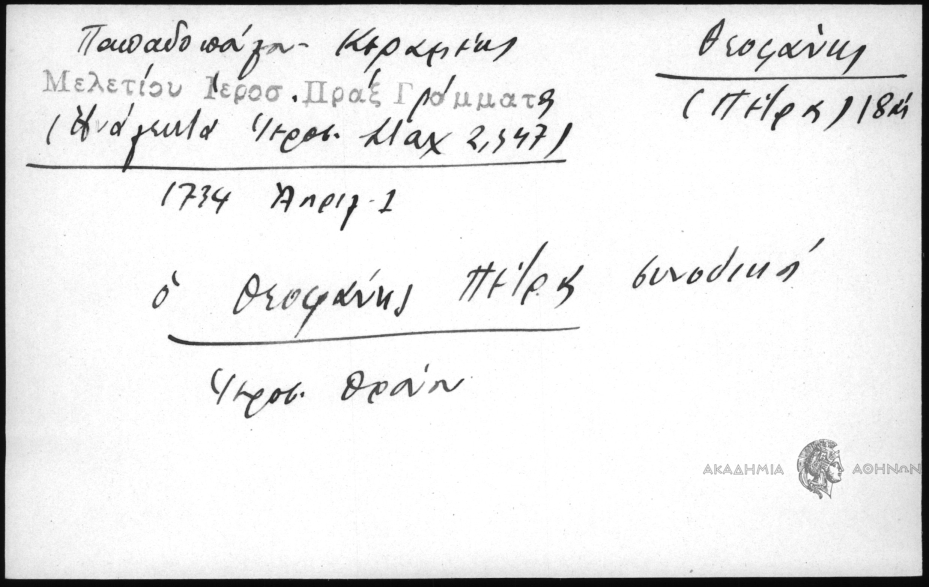 Παπαδοπούλου - Κεραμέως
Θεοφάνης
Μελετίου Ιεροσ. Πράξ Γράμματα
(Πέτρας) 18
(Ανάλεκτα Ιεροσ. Σταχ 2,347)
1734 Απριλ. 1
ὁ Θεοφάνης Πέτρας συνοδικά
Ιεροσ. Θρόνου
ΑΚΑΔΗΜΙΑ ΑΘΗΝΩΝ